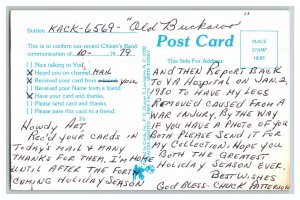 Station KACK-6569- "Old Buckaroo"
This is to confirm our recent Citizen's Band
communication of 10- 19 79
Nice talking to You!
Heard you on channel MAIL
Received your card from you
Received your Name from a friend.
Have you send card?
Please send card and thanks.
Have sent card and thanks.
Howdy Art,
Rec'd your cards in
Today's mail & many
thanks for them. I'm home
until after the forth
coming Holiday Season
Post Card
This Side For Address
PLACE
POSTAGE
HERE
And then report back
to VA Hospital on Jan. 2,
1980 to have my legs
removed caused from a
war injury. By the way
if you have a photo of you
both please send it for
my collection. Hope you
both the greatest
Holiday Season ever.
Best Wishes
God Bless- Chuck Patterson